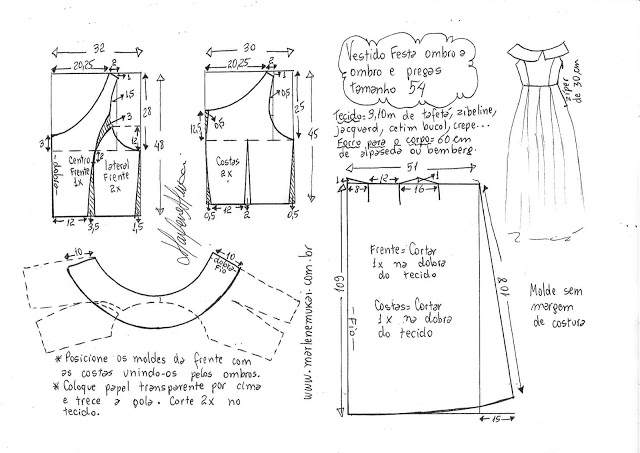 Vestido Festa ombro a
ombro e pregas
tamanho 54
Tecido: 3,10m de tafetá, zibeline,
jacquard, cetim bucol, crepe...
Forro para o corpo = 60 cm
de alpaseda ou bemberg.
zíper
de 30 cm
32
20,25
2
1
1,5
3
28
48
12
3
2
dobra
Centro
Frente
1x
lateral
Frente
2x
12
3,5
1,5
30
20,25
2
1
0,5
25
45
12,5
0,5
Costas
2x
0,5
12
2
0,5
Marlene Mukai
www.marlenemukai.com.br
51
1
8
12
16
1
Frente = Cortar
1x na dobra
do tecido
Costas = Cortar
1x na dobra
do tecido
109
Fio
108
15
Molde sem
margem
de costura
10
10
dobra
Fio
* Posicione os moldes da frente com
as costas unindo-os pelos ombros.
* Coloque papel transparente por cima
e trece a gola. Corte 2x no
tecido.